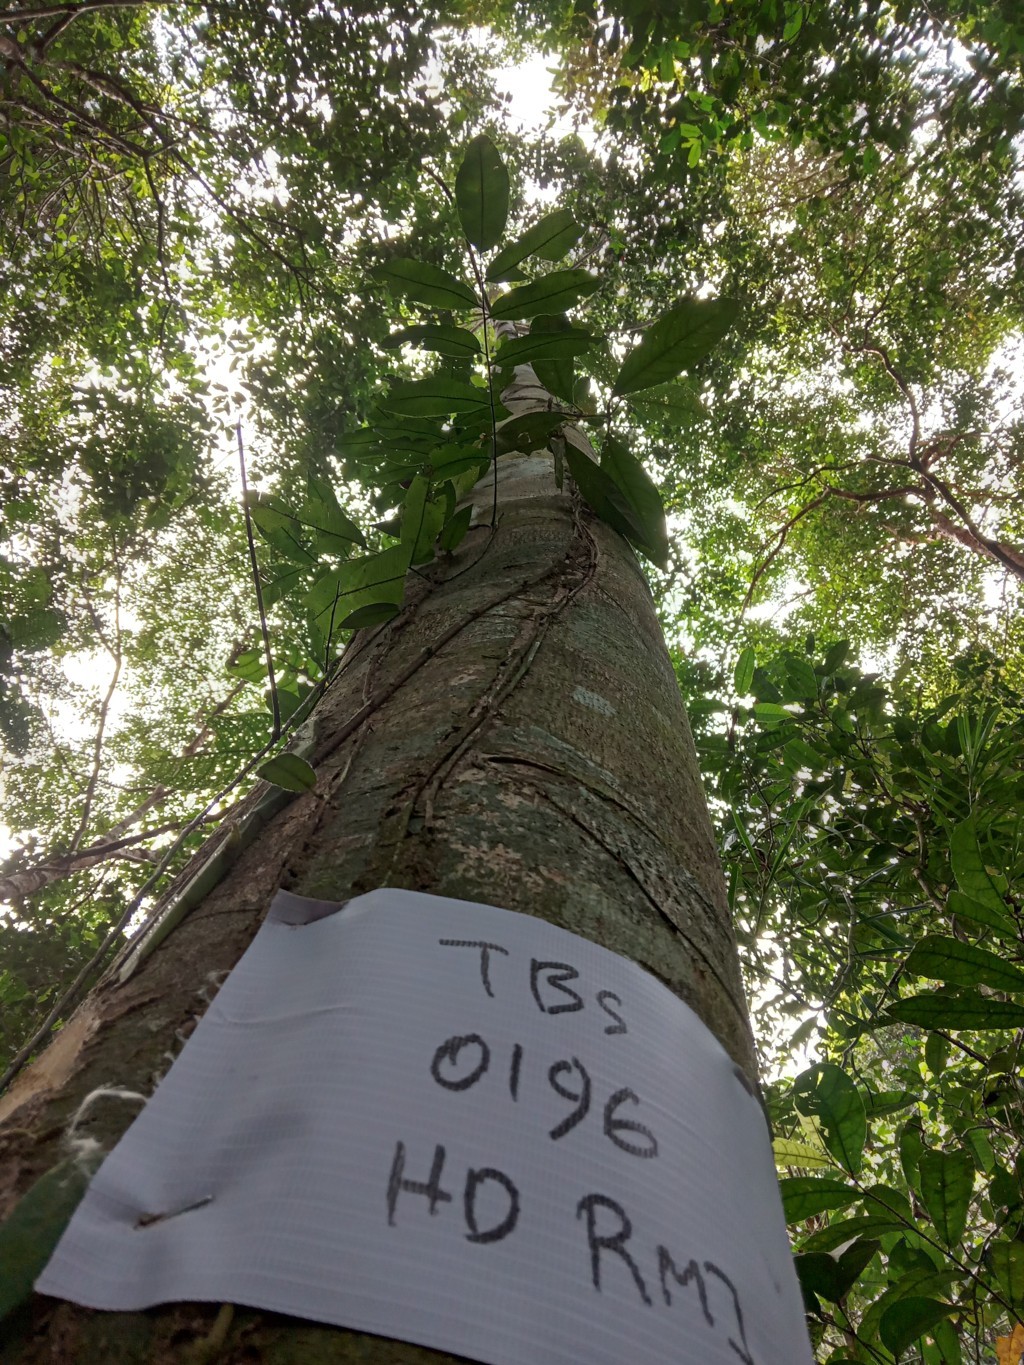 TBS
0196
HD RMJ